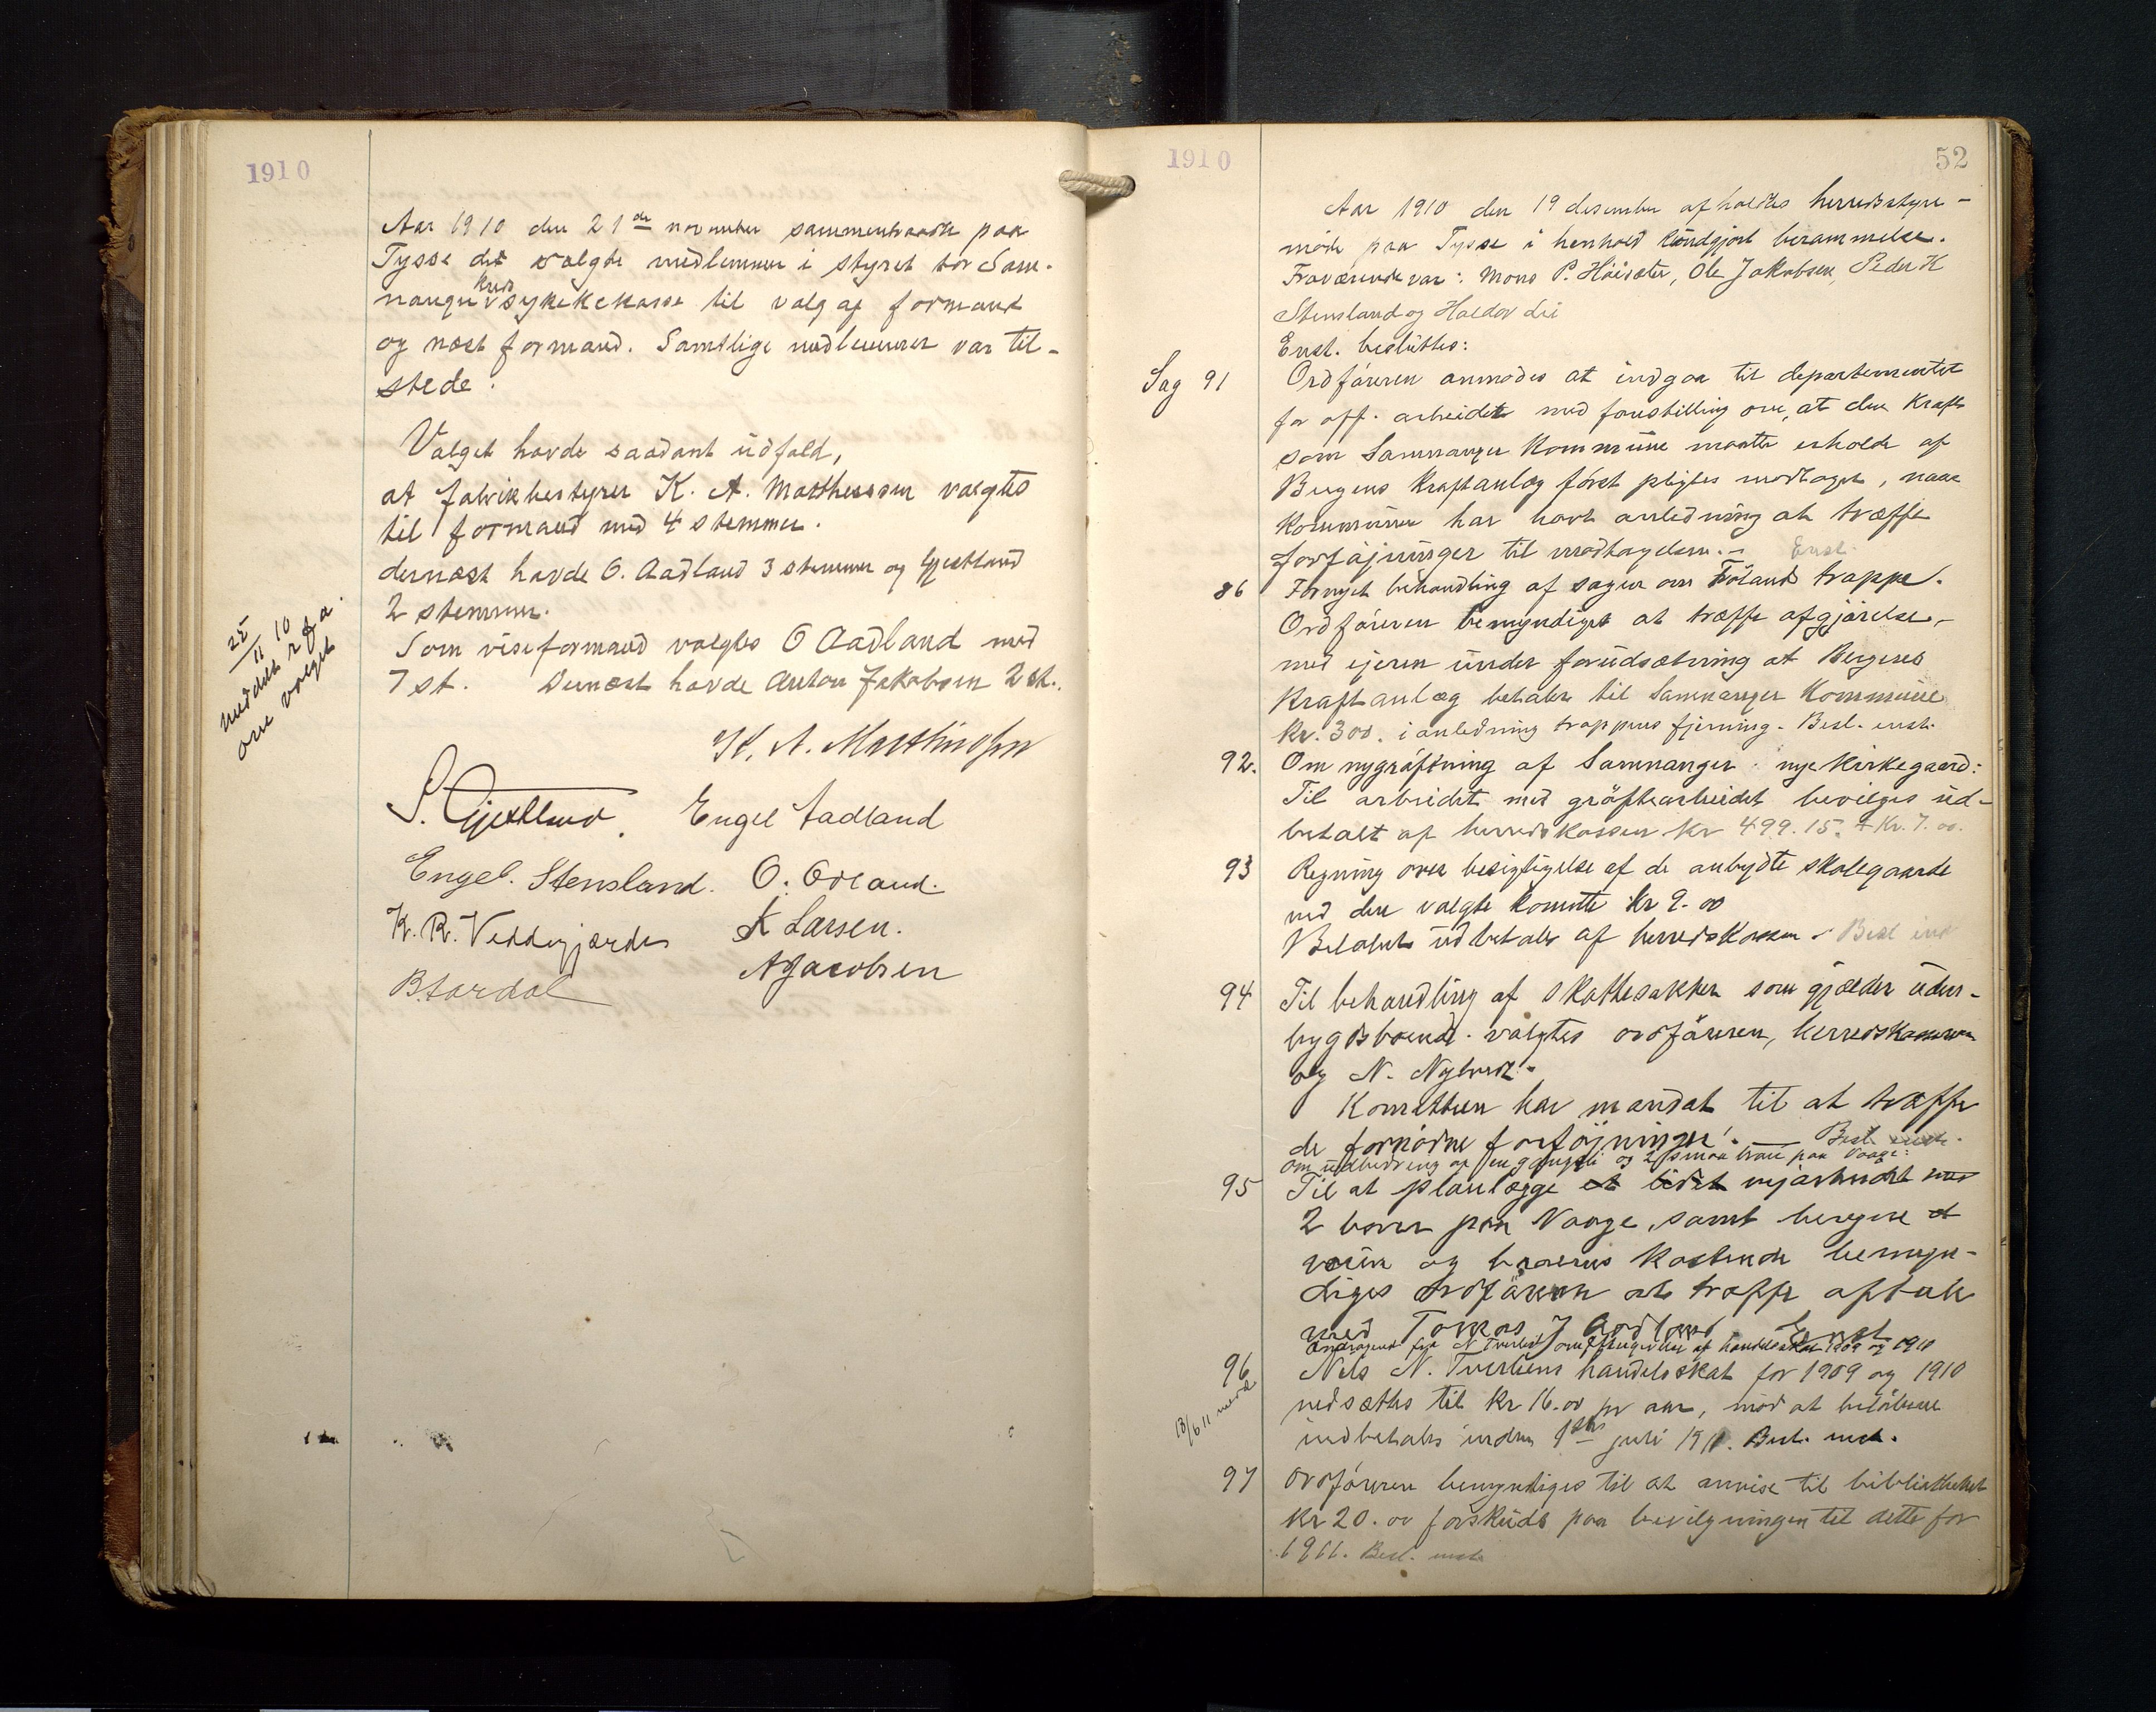 1910
Aar 1910 den 21de november sammentraadte paa
Tysse det valgte medlemmer i styret for Sam-
nanger kreds sykekekasse til valg af formand
og næst formand. Samtlige medlemmer var til-
stede.
Valget havde saadant udfald,
at fabrikbestyrer K. A. Matthessen valgtes
til formand med 4 stemmer.
dernæst havde O. Aadland 3 stemmer og Gjestland
2 stemmer.
Som viseformand valgtes O Aadland med
7 st. Dernæst havde Anton Jakobsen 2 st.
25/11 10
meddelt
om valget
K. A.
S. Gjestland. Engel Aadland
Engel. Stensland. O.
K. R. Veddegjærde K Larsen.
B. Aardal A Jacobsen
1910
52
Aar 1910 den 19 desember afholdtes herredsstyre-
møde paa Tysse i henhold kundgjort berammelse.
Fraværende var: Mons P. Höisæter, Ole Jakobsen, Peder K
Stensland og Haldor Lie
Enst. besluttes:
Sag 91 Ordföreren anmodes at indgaa til departementet
for off. arbeider med forestilling om, at den Kraft
som Samnanger Kommune maatte erholde af
Bergens Kraftanlæg först pligtes modtaget, naar
Kommunen har havt anledning at træffe
forföjninger til modtagelsen. - Enst.
86 Fornyet behandling af sagen om Fröland trappe.
Ordföreren bemyndiget at træffe afgjörelse,
med ejeren under forudsætning at Bergens
Kraftanlæg betaler til Samnanger Kommune
kr. 300. i anledning trappens fjerning. Besl. enst.
92. Om nygröftning af Samnanger nye Kirkegaard:
Til arbeidet med gröftearbeidet bevilges ud-
betalt af herredskassen Kr 499.15. + Kr. 7.00.
93 Regning over besigtigelse af de anbydte skolegaarde
ved den valgte komitte Kr 9.00
Belöbet udbetales af herredskassen. Besl enst
94 Til behandling af skattesakker som gjælder uden-
bygdsboende valgtes ordföreren, herredskasseren
og N.
Komitteen har mandat til at træffe
de fornödne forföjninger. Besl enst.
om udbedring af en og 2 smaa broer paa Vaage:
95 Til at planlægge et lidet vejarbeidet med
2 broer paa Vaage, samt beregne
veien og broernes Kostende bemyn-
diges ordföreren at træffe aftale
med Tomas J Aadland Enst
Andragende fra N Tverlid om eftergivelse af handelsskat 1909 og 1910
96 Nels N. Tverliens handelsskat for 1909 og 1910
nedsættes til Kr 16.00 pr aar, mod at belöbene
indbetales inden 1ste juli 1911. Besl. enst.
13/6 11 medd
97 Ordföreren bemyndiges til at anvise til bibliotheket
Kr 20.00 forskuds paa bevilgningen til dette for
1911. Besl. enst